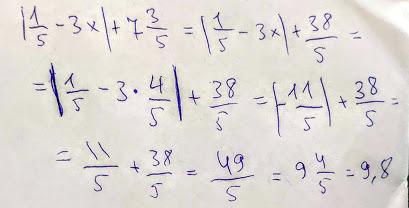 |1/5 - 3x| + 7 3/5 = |1/5 - 3x| + 38/5 =
= |1/5 - 3 · 4/5| + 38/5 = |-11/5| + 38/5 =
= 11/5 + 38/5 = 49/5 = 9 4/5 = 9,8